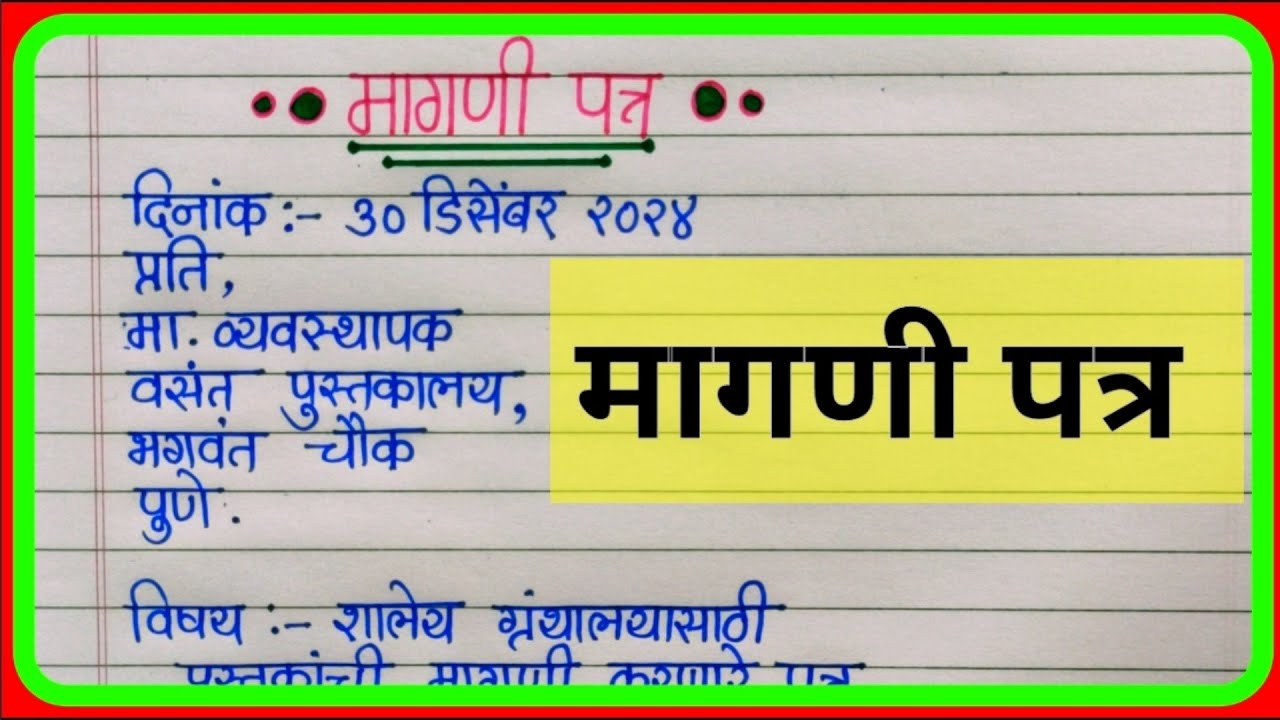 मागणी पत्र
दिनांक :- ३० डिसेंबर २०२४
प्रति,
मा. व्यवस्थापक
वसंत पुस्तकालय,
भगवंत चौक
पुणे.
मागणी पत्र
विषय :- शालेय ग्रंथालयासाठी
पुस्तकांची मागणी करणारे पत्र